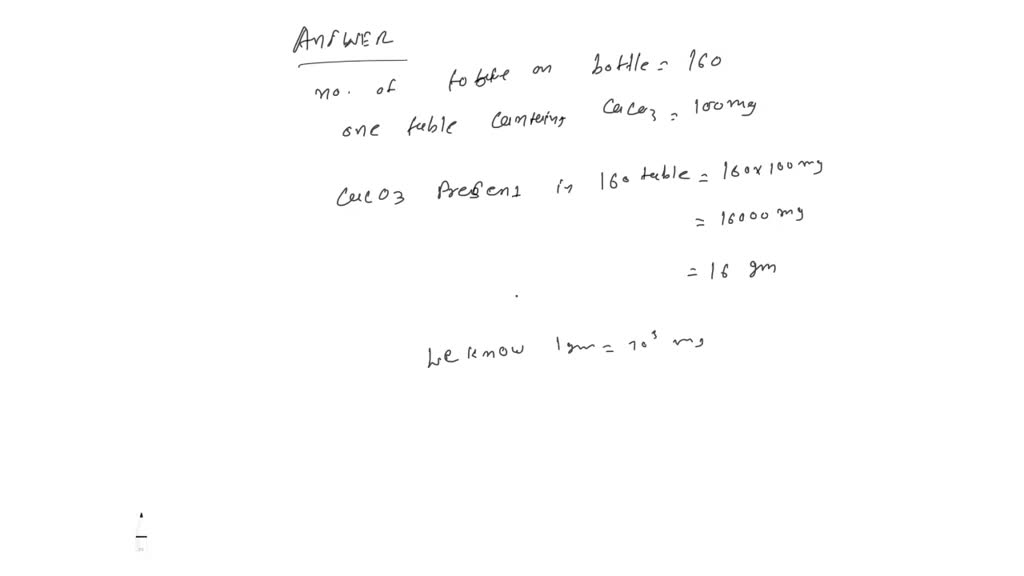 ANSWER
no. of on bottle = 160
one table CaCO3 = 100mg
CaCO3 Present in 160 table = 160x100mg
= 16000 mg
= 16 gm
we know 1 gm = 10³ mg